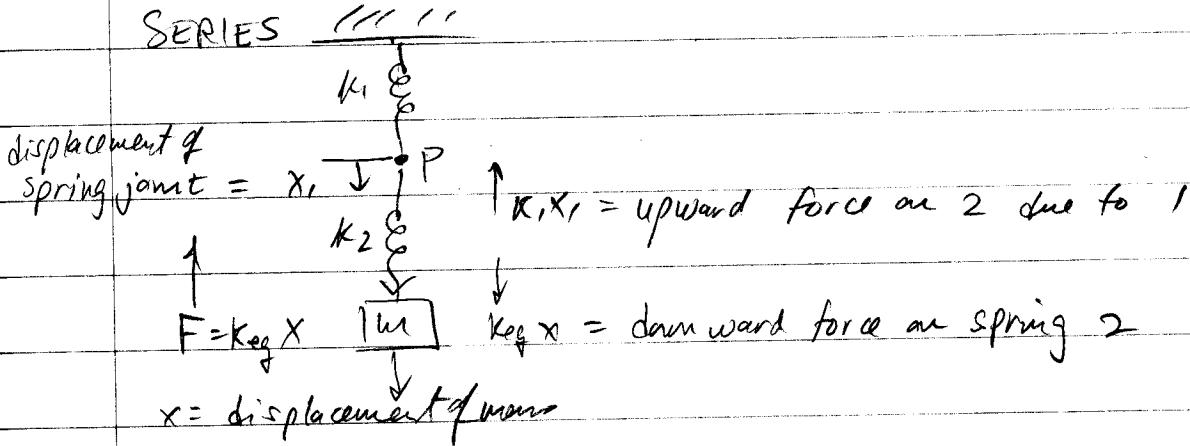 SERIES
k₁
displacement of
spring joint = x₁ P
k₁x₁ = upward force on 2 due to 1
k₂
F = keq x m keq x = downward force on spring 2
x = displacement of mass